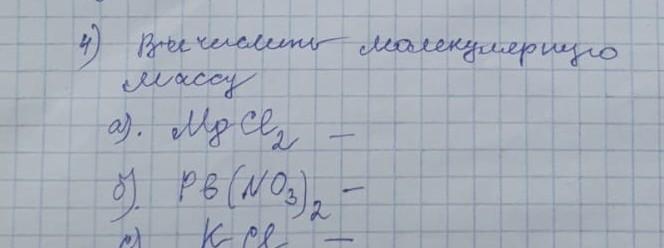 4) Вычислить молекулярную
массу
а). MgCl₂ —
б). Pb(NO₃)₂ —
с) KCl —